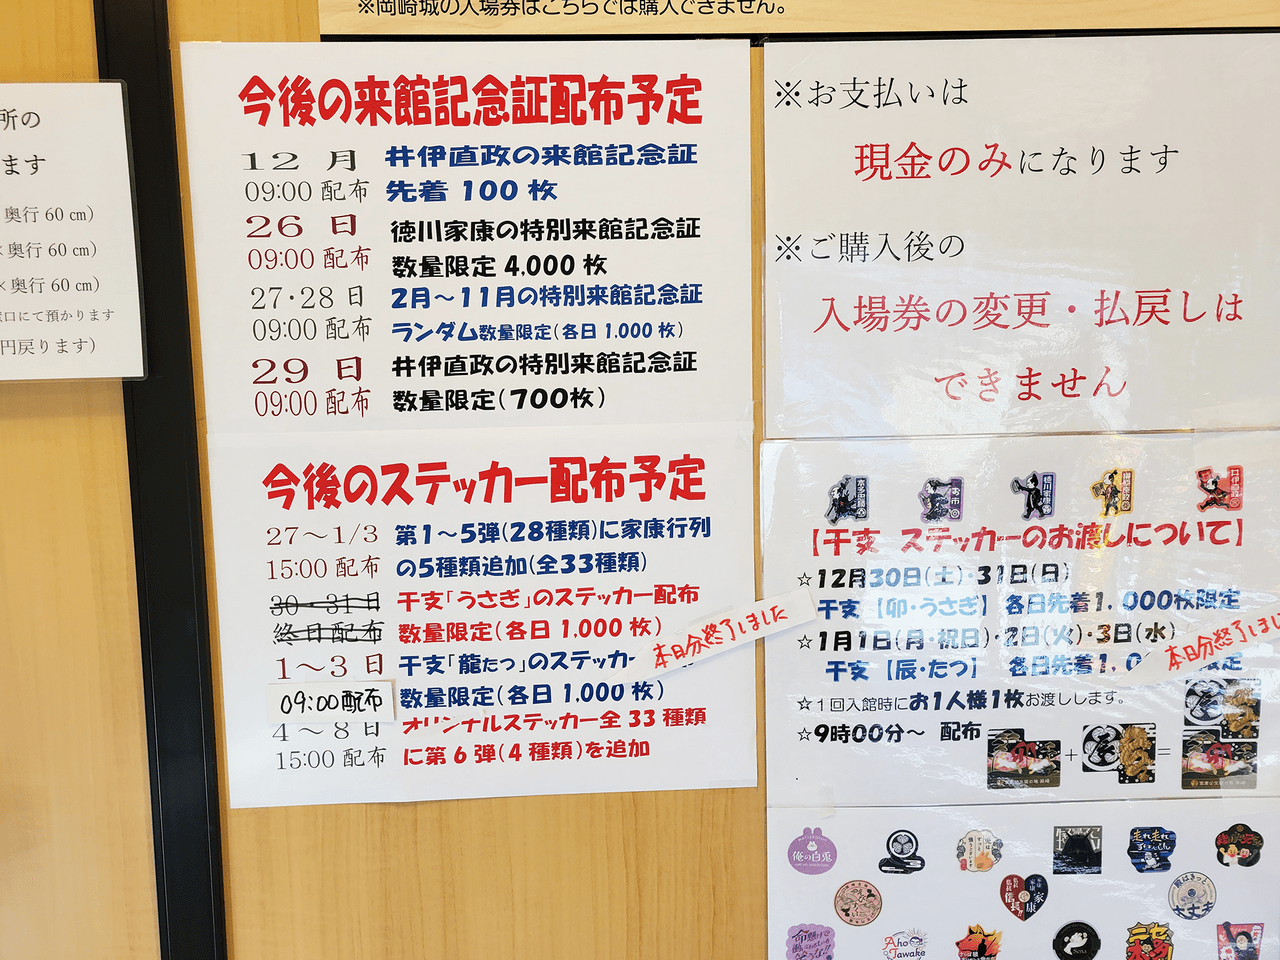 ※岡崎城の入場券はこちらでは購入できません。
所の
ます
奥行 60 cm)
×奥行 60 cm)
×奥行 60 cm)
口にて預かります
円戻ります)
今後の来館記念証配布予定
12 月 井伊直政の来館記念証
09:00 配布 先着 100 枚
26 日 徳川家康の特別来館記念証
09:00 配布 数量限定 4,000 枚
27・28 日 2月～11月の特別来館記念証
09:00 配布 ランダム数量限定(各日 1,000 枚)
29 日 井伊直政の特別来館記念証
09:00 配布 数量限定(700枚)
今後のステッカー配布予定
27～1/3 第1～5弾(28種類)に家康行列
15:00 配布 の5種類追加(全33種類)
30・31日 干支「うさぎ」のステッカー配布
終日配布 数量限定(各日 1,000 枚)
本日分終了しました
1～3 日 干支「龍たつ」のステッカー
09:00配布 数量限定(各日 1,000 枚)
4～8日 オリジナルステッカー全 33 種類
15:00 配布 に第 6 弾(4 種類)を追加
※お支払いは
現金のみになります
※ご購入後の
入場券の変更・払戻しは
できません
本多忠勝
お市
徳川家康
榊原康政
井伊直政
【干支 ステッカーのお渡しについて】
☆12月30日(土)・31日(日)
干支【卯・うさぎ】 各日先着1,000枚限定
☆1月1日(月・祝日)・2日(火)・3日(水)
干支【辰・たつ】 各日先着1,0 限定
本日分終了しました
☆1回入館時にお1人様1枚お渡しします。
☆9時00分～ 配布
+ =
俺の白兎
走れ走れ
家康
信長
殿はきっと
大丈夫
Aho
Tawake
ニセ
本多